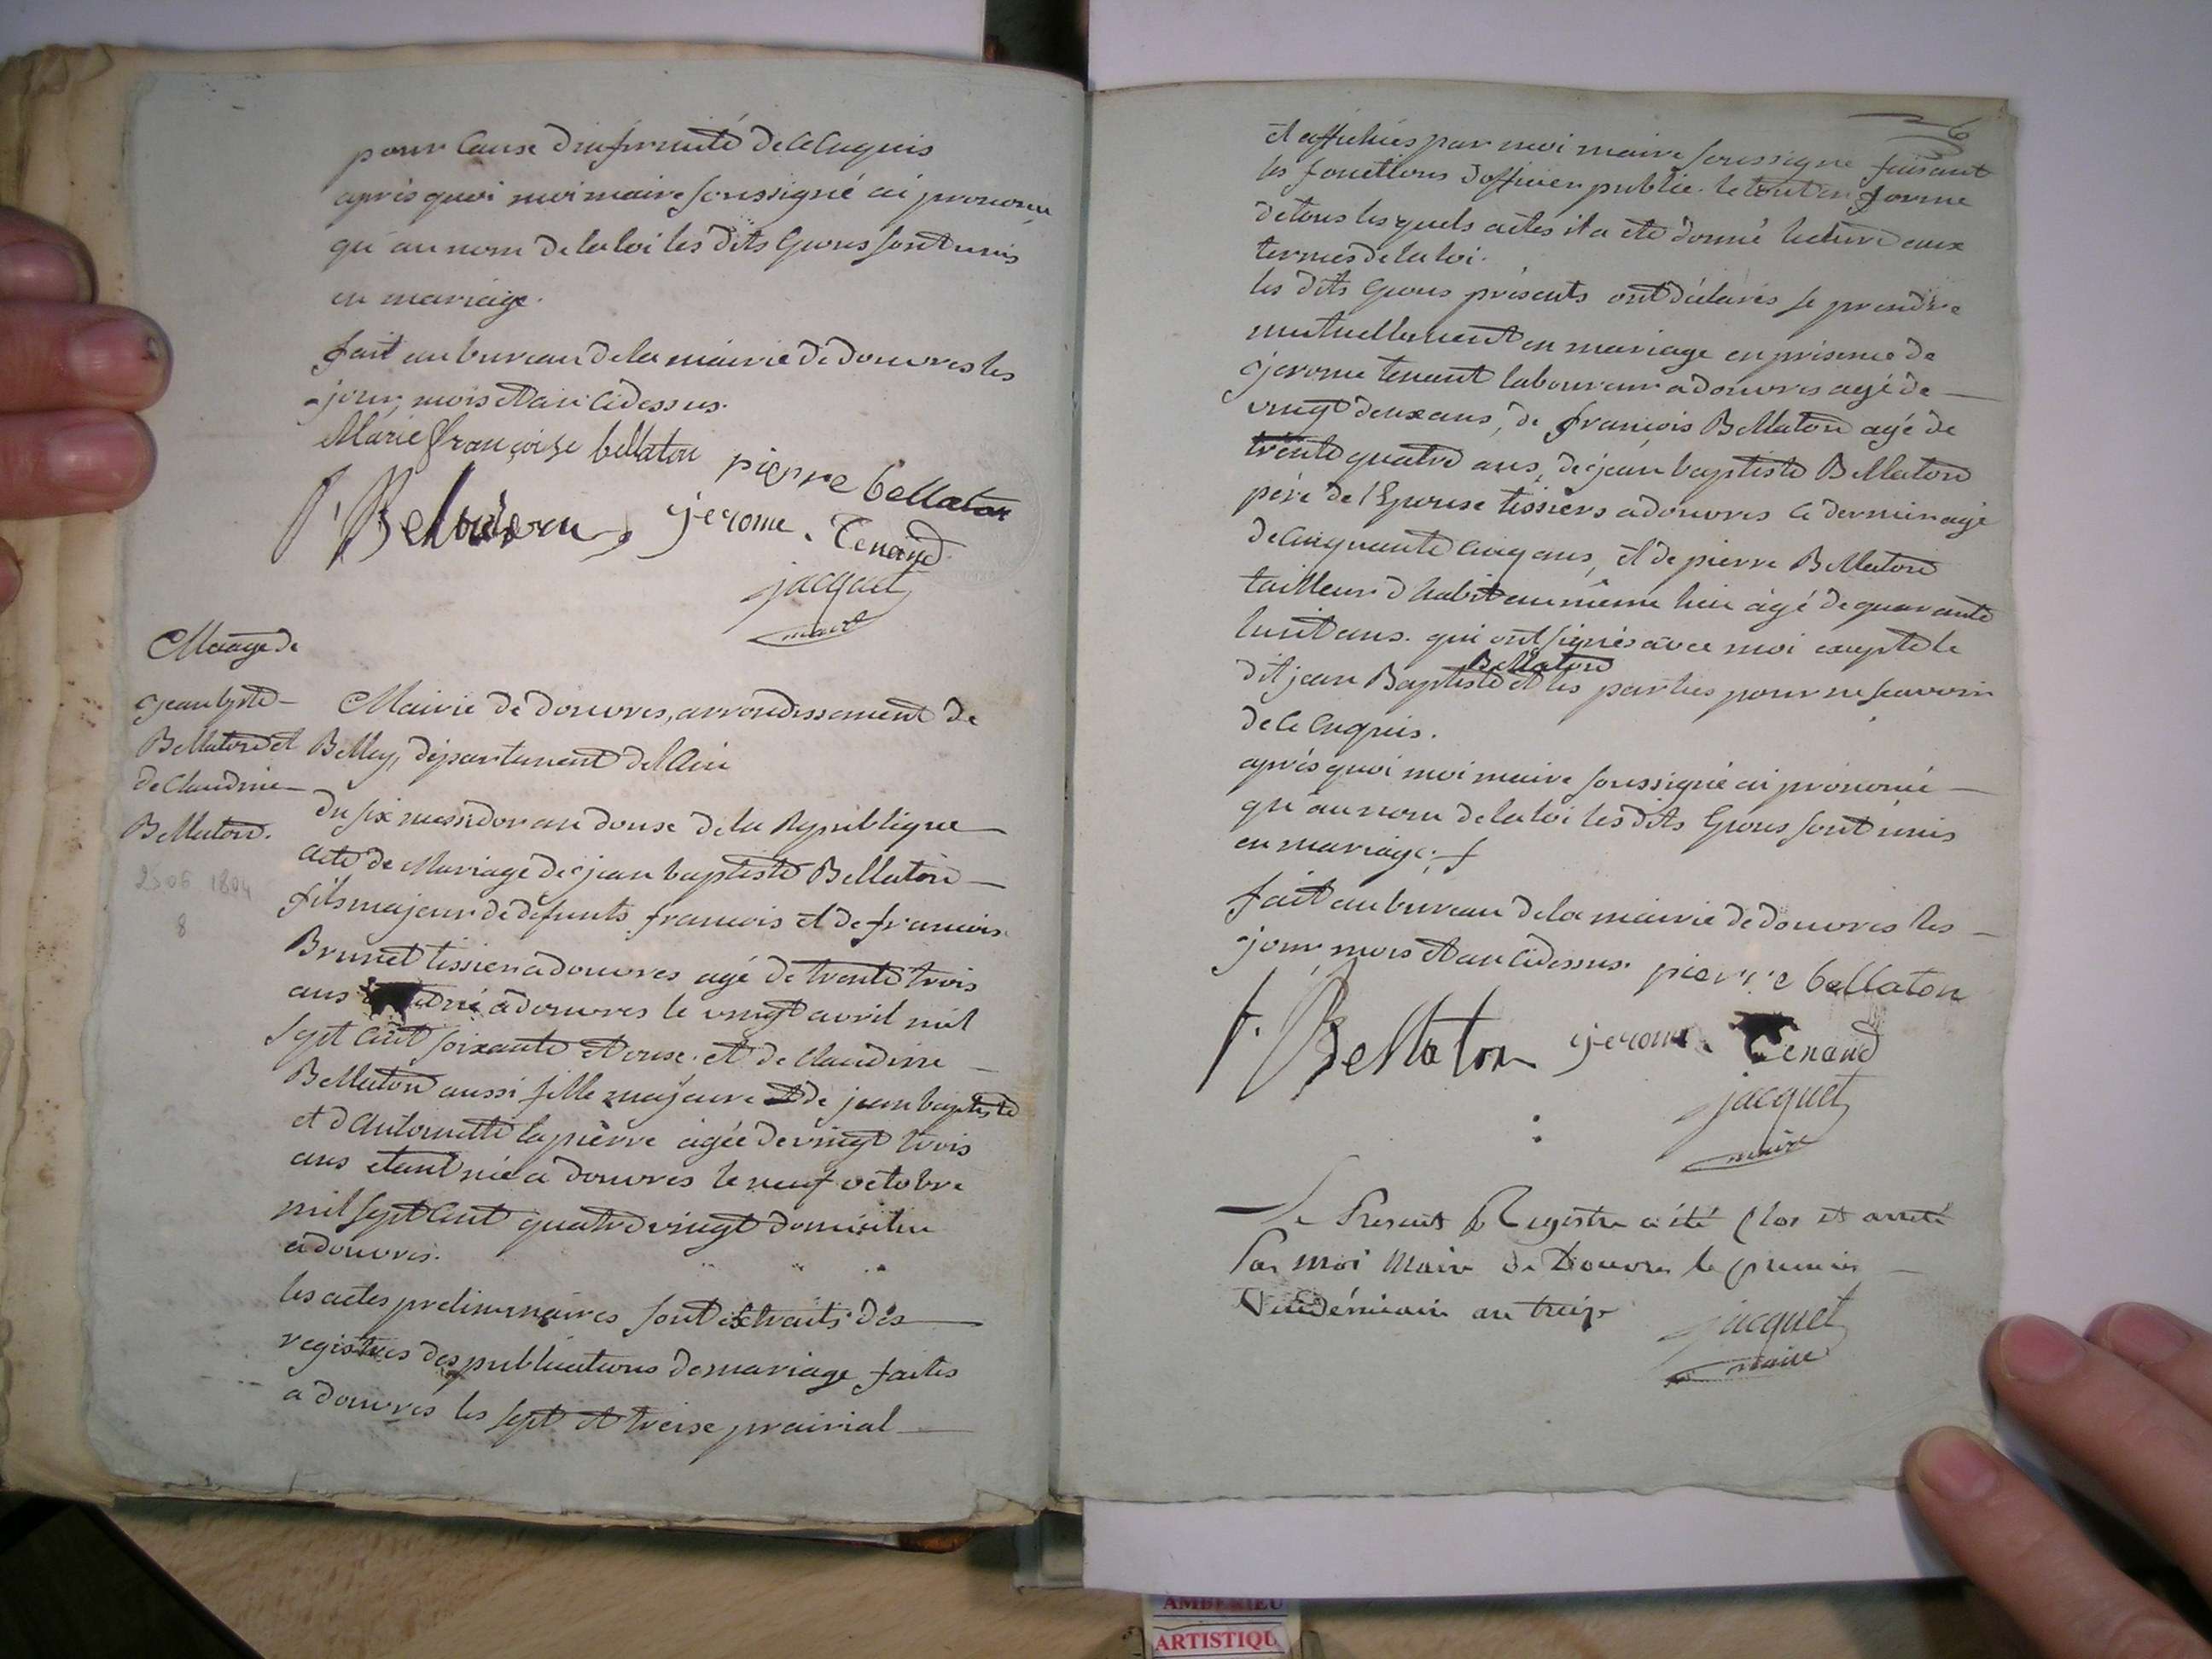 pour cause d'infirmité de ce enquis
après quoi moi maire soussigné ai prononcé
qu'au nom de la loi les dits Epous sont unis
en mariage.
fait au bureau de la mairie de douvres les
jour, mois et an cidessus.
Marie françoise bellaton pierre bellaton
jerome. Tenand
jacquet
maire
Mariage de
jean bpte
Bellaton et
de Claudine
Bellaton.
25 06 1804
8
Mairie de douvres, arrondissement de
Belley, département de l'Ain
du six messidor an douse de la République
acte de Mariage de jean baptiste Bellaton
fils majeur de défunts francois et de francoise
Brunet tissier a douvres agé de trente trois
ans né a douvres le vingt avril mil
sept cent soixante et onse. et de Claudine
Bellaton aussi fille majeure de jean baptiste
et d'Antoinette lapierre agée de vingt trois
ans etant née a douvres le neuf octobre
mil sept cent quatre vingt domiciliée
a douvres.
les actes preliminaires sont extraits des
registres des publications de mariage faites
a douvres les sept et treise prairial
6
et affichées par moi maire soussigné faisant
les fonctions d'officier public. le tout en forme
de tous lesquels actes il a eté donné lecture aux
termes de la loi.
les dits Epous présents ont déclarés se prendre
mutuellement en mariage en présence de
jerome tenant laboureur a douvres agé de
vingt deux ans, de françois Bellaton agé de
trente quatre ans, de jean baptiste Bellaton
père de l'Epouse tissiers a douvres ce dernier agé
de cinquante cinq ans, et de pierre Bellaton
tailleur d'habit au même lieu agé de quarante
huit ans. qui ont signés avec moi excepté le
Bellaton
dit jean Baptiste et les parties pour ne scavoir
de ce enquis.
après quoi moi maire soussigné ai prononcé
qu'au nom de la loi les dits Epous sont unis
en mariage.
fait au bureau de la mairie de douvres les
jour mois et an cidessus. pierre bellaton
f. Bellaton jerome. Tenand
jacquet
maire
Le Present Registre a été clos et arreté
Par moi Maire de Douvres le premier
Vendémiaire an treize
jacquet
maire
AMBERIEU
ARTISTIQU